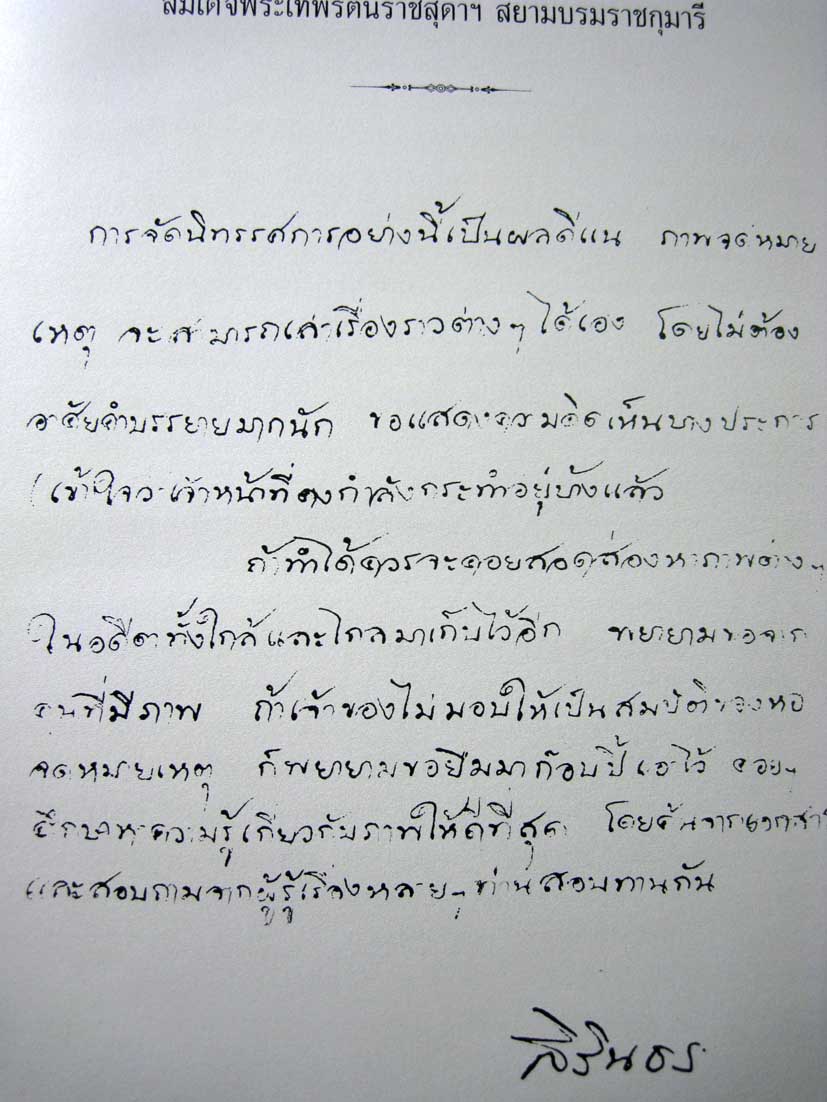 สมเด็จพระเทพรัตนราชสุดาฯ สยามบรมราชกุมารี
การจัดนิทรรศการอย่างนี้เป็นผลดีแน่ ภาพจดหมาย
เหตุ จะสามารถเล่าเรื่องราวต่างๆ ได้เอง โดยไม่ต้อง
อาศัยคำบรรยายมากนัก ขอแสดงความคิดเห็นบางประการ
(เข้าใจว่าเจ้าหน้าที่คงกำลังกระทำอยู่บ้างแล้ว
ถ้าทำได้ควรจะคอยสอดส่องหาภาพต่างๆ
ในอดีตทั้งใกล้และไกลมาเก็บไว้อีก พยายามขอจาก
คนที่มีภาพ ถ้าเจ้าของไม่มอบให้เป็นสมบัติของหอ
จดหมายเหตุ ก็พยายามขอยืมมาก๊อบปี้เอาไว้ ค่อยๆ
ศึกษาหาความรู้เกี่ยวกับภาพให้ดีที่สุด โดยค้นจากเอกสาร
และสอบถามจากผู้รู้เรื่องหลายๆ ท่านสอบทานกัน
สิรินธร